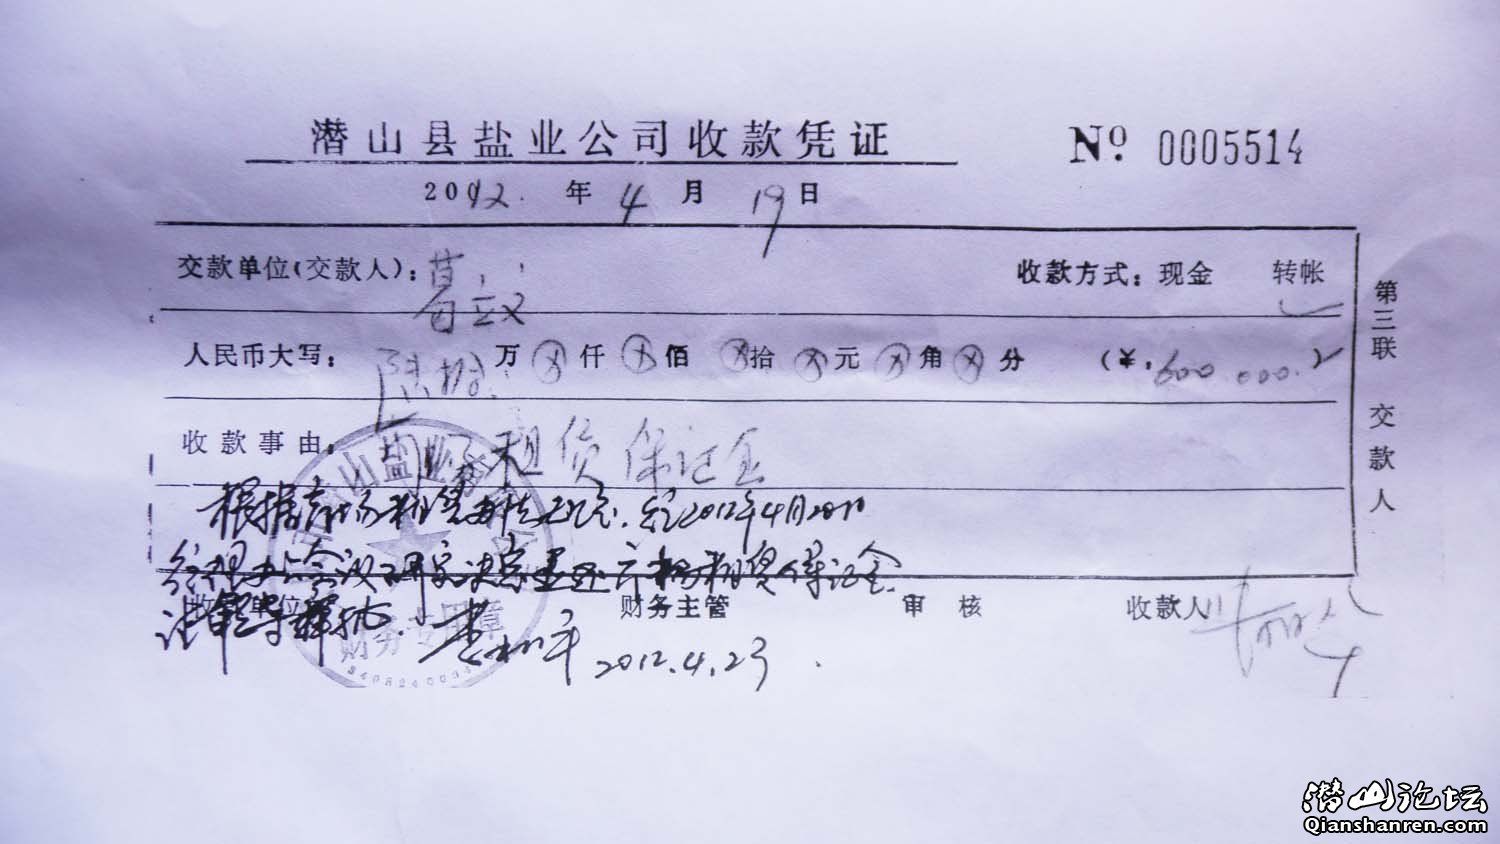 潜山县盐业公司收款凭证 № 0005514
2012. 年 4 月 19 日
交款单位(交款人): 葛立文 收款方式: 现金 转帐 ✓
人民币大写: 陆拾 万 ⊗ 仟 ⊗ 佰 ⊗ 拾 ⊗ 元 ⊗ 角 ⊗ 分 (¥: 600.000.)
收款事由: 租赁保证金
根据 租赁 2012年4月20日
经理办公会议研究决定 租赁保证金
收 单位 财务主管 审核 收款人
2012.4.23
财务专用章
第三联 交款人
潜山论坛
Qianshanren.com